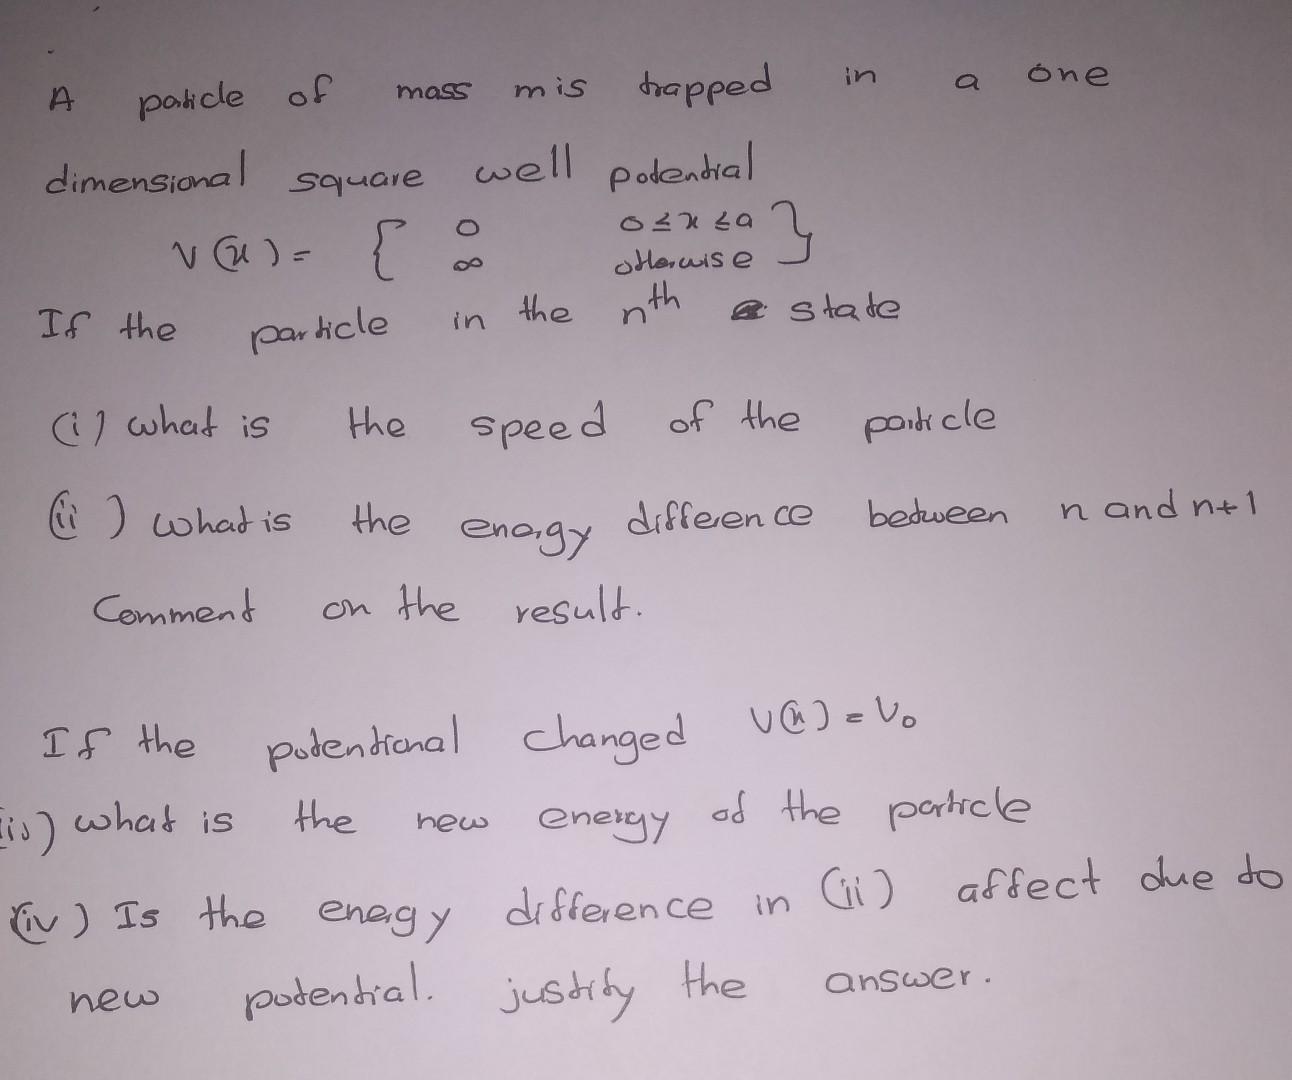 A paticle of mass m is trapped in a one
dimensional square well potential
V(x) = { 0 0 ≤ x ≤ a }
∞ otherwise
If the particle in the nth state
(i) what is the speed of the particle
(ii) what is the energy difference between n and n+1
Comment on the result.
If the potentional changed V(x) = V₀
iii) what is the new energy of the particle
(iv) Is the enegy difference in (ii) affect due to
new potential. justify the answer.